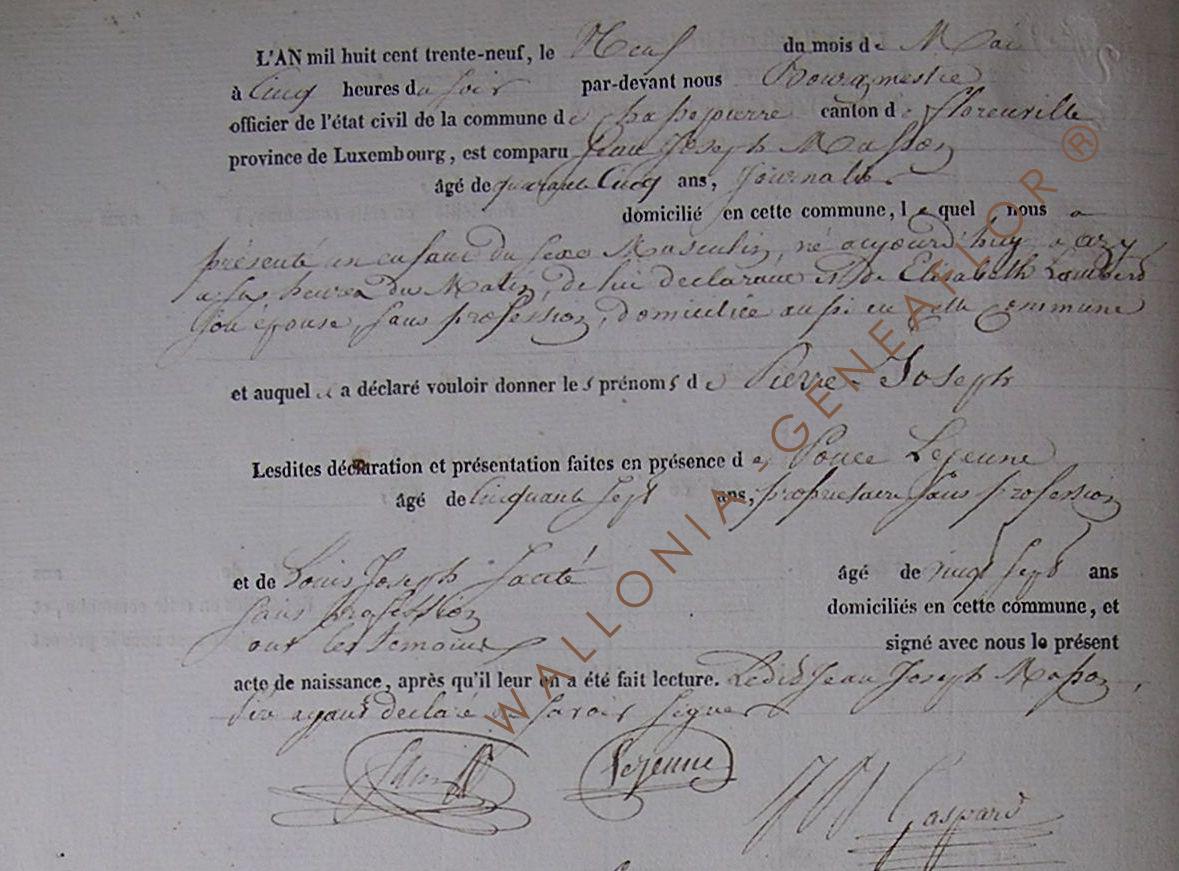 L'AN mil huit cent trente-neuf, le Neuf du mois de Mai
à Cinq heures du soir par-devant nous Bourgmestre
officier de l'état civil de la commune de Chassepierre canton de Florenville
province de Luxembourg, est comparu Jean Joseph Masson
âgé de quarante Cinq ans, Journalier
domicilié en cette commune, lequel nous a
présenté un enfant du sexe Masculin, né aujourd'huy a azy
a six heures du Matin, de lui déclarant et de Elisabeth Lambert
son épouse, sans profession, domiciliée aussi en cette commune
et auquel il a déclaré vouloir donner les prénoms de Pierre-Joseph
Lesdites déclaration et présentation faites en présence de Ponce Lejeune
âgé de Cinquante sept ans, propriétaire sans profession
et de Louis Joseph âgé de vingt sept ans
sans profession domiciliés en cette commune, et
ont les témoins signé avec nous le présent
acte de naissance, après qu'il leur en a été fait lecture. Ledit Jean Joseph Masson,
ayant déclaré ne savoir signer
Lejeune
Gaspard
WALLONIA-GENEAFLOR ®